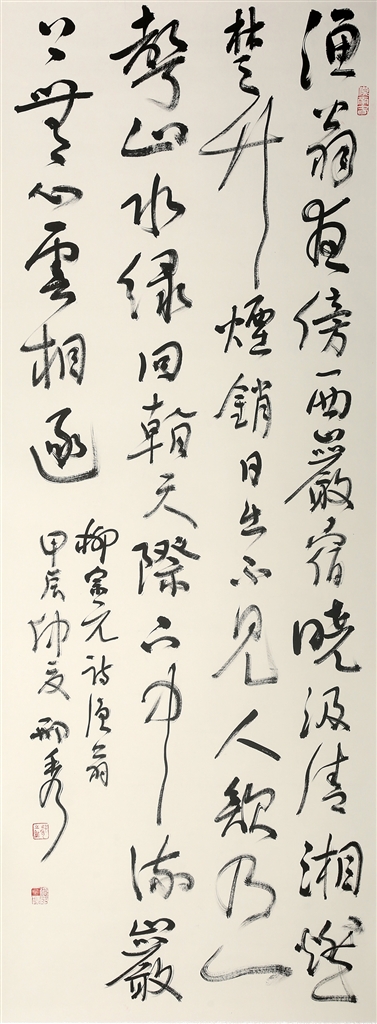 漁翁夜傍西巖宿曉汲清湘燃
楚竹煙銷日出不見人欸乃一
聲山水綠回看天際下中流巖
上無心雲相逐
柳宗元詩漁翁
甲辰仲夏